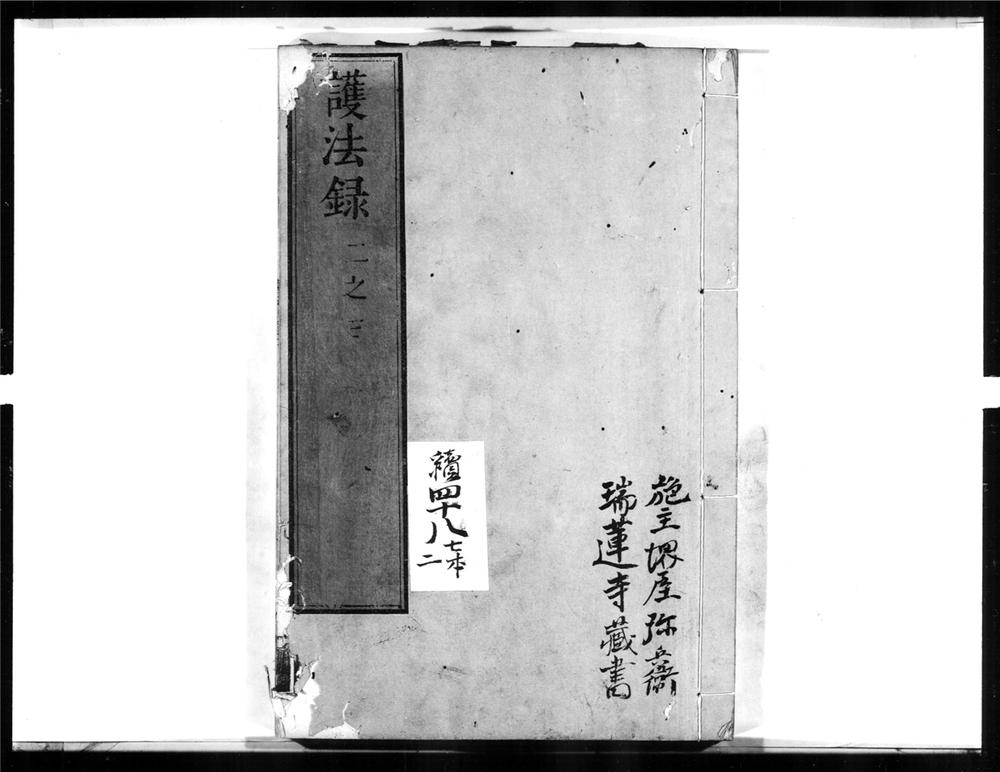 施主堺屋弥兵衛
瑞蓮寺藏書
續四十八
七本
二
護法録 二之三